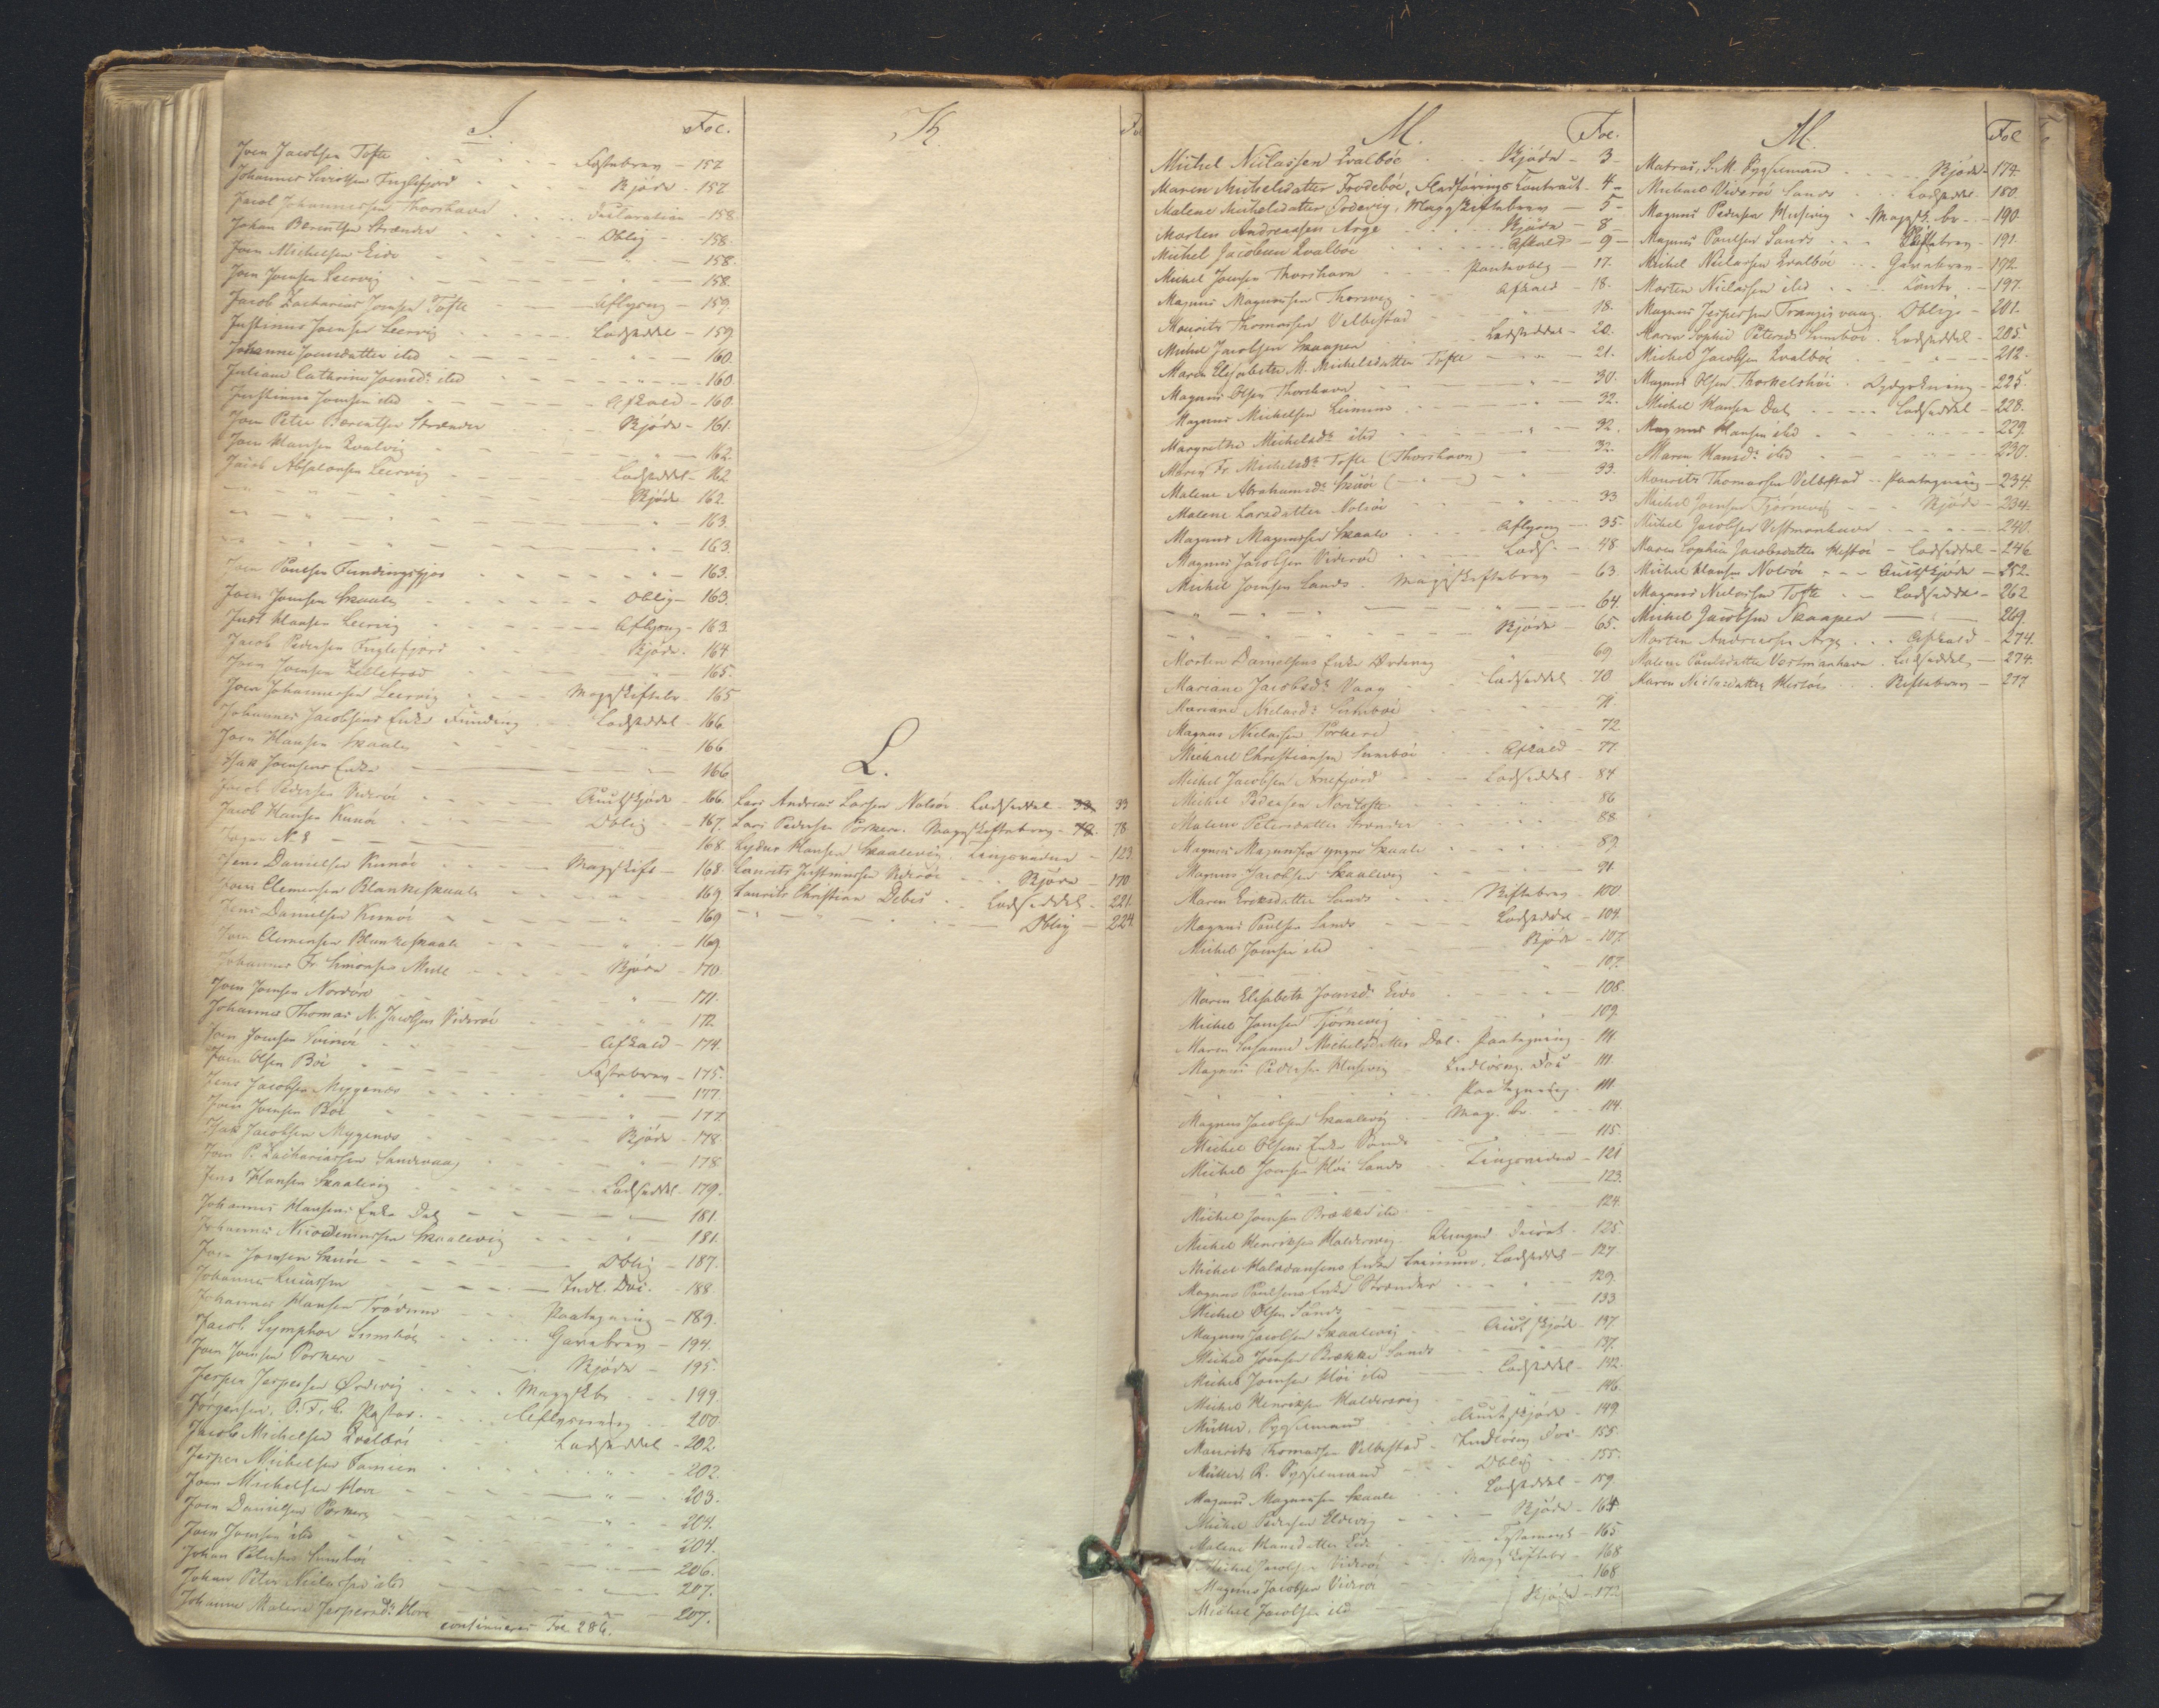 J. Foe.
Joen Jacobsen Tofte - Fæstebrev - 157
Johannes Fuglefjord - Skjöde - 157
Jacob Johannessen Thorshavn - Declaration - 158.
Johan Berentsen Strænder - Oblig - 158.
Joen Michelsen Eide - " - 158.
Joen Joensen Leervig - " - 158.
Jacob Zacharias Joensen Tofte - Aflysng - 159.
Justinus Joensen Leervig - Ladseddel - 159
Johanne Joensdatter ibd - " - 160.
Juliane Cathrine Joensd. ibd - " - 160.
Justinus Joensen ibd - Afkald - 160.
Joen Peter Berentsen Strænder - Skjöde - 161.
Joen Hansen Qvalvig - " - 162.
Jacob Absalonsen Leervig - Ladseddel - 162
" " " - Skjöde - 162.
" " " - " - 163.
" " " - " - 163.
Joen Poulsen Fundingsfjor - " - 163.
Joen Joensen Skaale - Oblig - 163.
Just Hansen Leervig - Aflysng - 163.
Jacob Pedersen Fuglefjord - Skjöde - 164.
Joen Joensen - " - 165.
Joen Johannesen Leervig - Mageskiftebr. - 165
Johannes Jacobsens Enke Funding - Ladseddel - 166.
Joen Hansen Skaale - " - 166.
Isak Joensens Enke - " - 166
Jacob Pedersen Viderøi - Auctskjöde - 166.
Jacob Hansen Kunøi - Oblig - 167.
Jager N. 8 - 168.
Jens Danielsen Kunøi - Magskift - 168.
Joen Clemensen Blankeskaale - " - 169
Jens Danielsen Kunøi - " - 169
Joen Clemensen Blankeskaale - " - 169.
Johannes Fr. Simonsen Mule - Skjöde - 170.
Joen Joensen Nordöre - " - 171.
Johannes Thomas N. Jacobsen Viderøi - " - 172
Joen Joensen Svinøi - Afkald - 174.
Joen Olsen Böe - Fæstebrev - 175.
Jens Jacobsen Myggenæs - " - 177.
Joen Joensen Böe - " - 177.
Isak Jacobsen Myggenæs - Skjöde - 178.
Joen P. Zachariassen Sandevaag - " - 178
Jens Hansen Skaalevig - Ladseddel - 179.
Johannes Hansens Enke Dal - " - 181.
Johannes Nicodemussen Skaalevig - " - 181.
Joen Joensen Skuøi - Oblig - 187.
Johannes - Indl. Doc. - 188
Johannes Hansen Trödum - Paategning - 189.
Jacob Symphor Sumbøe - Gavebrev - 194.
Joen Joensen Porkere - Skjöde - 195.
Jesper Jespersen Ørdevig - Magskbr - 199.
Jörgensen, P. F. C. Pastor - Aflysning - 200.
Jacob Michelsen Qvalböe - Ladseddel - 202.
Jesper Michelsen Famien - " - 202.
Joen Michelsen Hove - " - 203.
Joen Danielsen Porkere - " - 204.
Joen Joensen ibd - " - 204.
Johan Petersen Sumböe - " - 206.
Johan Peter Nielassen ibd - " - 207.
Johanne Malene Jespersd. Hove - " - 207.
continueres Foe 286.
K
L.
Lars Andreas Larsen Nolsöe - Ladseddel - 33 33
Lars Pedersen Porkere - Mageskiftebrev - 78. 78
Lydur Hansen Skaalevig - Tingsvidne - 123.
Laurits Justinussen Viderøi - Skjöde - 170
Laurits Christian Debes - Ladseddel - 221.
" " " - Oblig - 224
M. Foe.
Michel Nielassen Qvalböe - Skjöde - 3
Maren Michelsdatter Frodeböe, Fladførings Contract - 4
Malene Michelsdatter Ordevig, Mageskiftebrev - 5
Morten Andreassen Arge - Skjöde - 8
Michel Jacobsen Qvalböe - Afkald - 9
Michel Joensen Thorshavn - Panteoblg - 17.
Magnus Magnussen Thorsvig - Afkald - 18.
Mourits Thomassen Velbestad - " - 18.
Michel Jacobsen Skaapen - Ladseddel - 20.
Maren Elisabeth M. Michelsdatter Tofte - " - 21.
Magnus Olsen Thorshavn - " - 30.
Magnus Michelsen Leinum - " - 32.
Margrethe Michelsd. ibd - " - 32.
Maren Fr. Michelsd. Tofte (Thorshavn) - 32.
Malene Abrahamsd. Skuöi ( - " - ) - 33.
Malene Larsdatter Nolsöe - " - 33
Magnus Magnussen Skaale - Aflysng - 35.
Magnus Jacobsen Viderøe - Lads. - 48
Michel Joensen Sands - Mageskiftebrev - 63.
" " " - " - 64.
" " " - Skjöde - 65.
Morten Danielsens Enke Ordevig - " - 69
Mariane Jacobsd. Vaag - Ladseddel - 70
Mariane Nielasd. Sumböe - " - 71.
Magnus Nielassen Porkere - " - 72
Michael Christiansen Sumböe - Afkald - 77.
Michel Jacobsen Arnefjord - Ladseddel - 84
Michel Pedersen Nordtofte - " - 86
Malene Petersdatter Strænder - " - 88
Magnus Magnussen yngre Skaale - " - 89.
Magnus Jacobsen Skaalevig - " - 91.
Maren Eriksdatter Sands - Skiftebrev - 100
Magnus Poulsen Sands - Ladseddel - 104.
Michel Joensen ibd - Skjöde - 107.
" " " - " - 107.
Maren Elisabeth Joensd. Eide - " - 108.
Michel Joensen Tjörnevig - " - 109.
Maren Susanne Michelsdatter Dal - Paategning - 111.
Magnus Pedersen Husevig - Indløsng. Doc - 111.
" " " - Paategning - 111.
Magnus Jacobsen Skaalevig - Mag. br. - 114.
Michel Olsens Enke Sands - " - 115.
Michel Joensen Höi Sands - Tingsvidne - 121
" " " - " - 123.
Michel Joensen Brække ibd - " - 124.
Michel Henriksen Haldersvig - 125.
Michel Halvdansens Enke Leinum, Ladseddel - 127.
Magnus Poulsens Enke Strænder - " - 129.
Michel Olsen Sands - " - 133
Magnus Jacobsen Skaalevig - Auctskjöde - 137
Michel Joensen Brække Sands - " - 137.
Michel Joensen Höi ibd - Ladseddel - 142.
Michel Henriksen Haldersvig - " - 146.
Müller, Sysselmand - Auctskjöde - 149
Mourits Thomassen Velbestad - Indløsng. Doc - 155.
Müller, R. Sysselmand - Oblig - 155.
Magnus Magnussen Skaale - Ladseddel - 159
Michel Pedersen Eldevig - Skjöde - 164
Malene Hansdatter Eide - Testament - 165
Michel Jacobsen Viderøi - Mageskiftebr - 168
Magnus Jacobsen Viderøi - " - 168
Michel Jacobsen ibd - Skjöde - 172
M. Foe
Matras, S. M. Sysselmand - Skjöde - 174
Michael Viderøe Sands - Ladseddel - 180.
Magnus Pedersen Husevig - Magsk. br. - 190
Magnus Poulsen Sands - Skiftebrev - 191.
Michel Nielassen Qvalböe - Gavebrev - 192
Morten Nielassen ibd - Contr. - 197.
Magnus Jespersen Trangisvaag - Oblig - 201.
Maren Sophie Petersd. Sumböe - Ladseddel - 205.
Michel Jacobsen Qvalböe - " - 212.
Magnus Olsen Thorkelshöi - 225.
Michel Hansen Dal - Ladseddel - 228.
Magnus Hansen ibd - " - 229.
Maren Hansd. ibd - " - 230.
Mourits Thomassen Velbestad - Paategning - 234.
Michel Joensen Tjörnevig - Skjöde - 234.
Michel Jacobsen Vestmanhavn - " - 240.
Maren Sophia Jacobsdatter Hestöe - Ladseddel - 246
Michel Hansen Nolsöe - Auctskjöde - 252.
Magnus Nielassen Tofte - Ladseddel - 262
Michel Jacobsen Skaapen - " - 269.
Morten Andreassen Arge - Afkald - 274.
Malene Poulsdatter Vestmanhavn - Ladseddel - 274.
Maren Nielasdatter Hestöe - Skiftebrev - 277